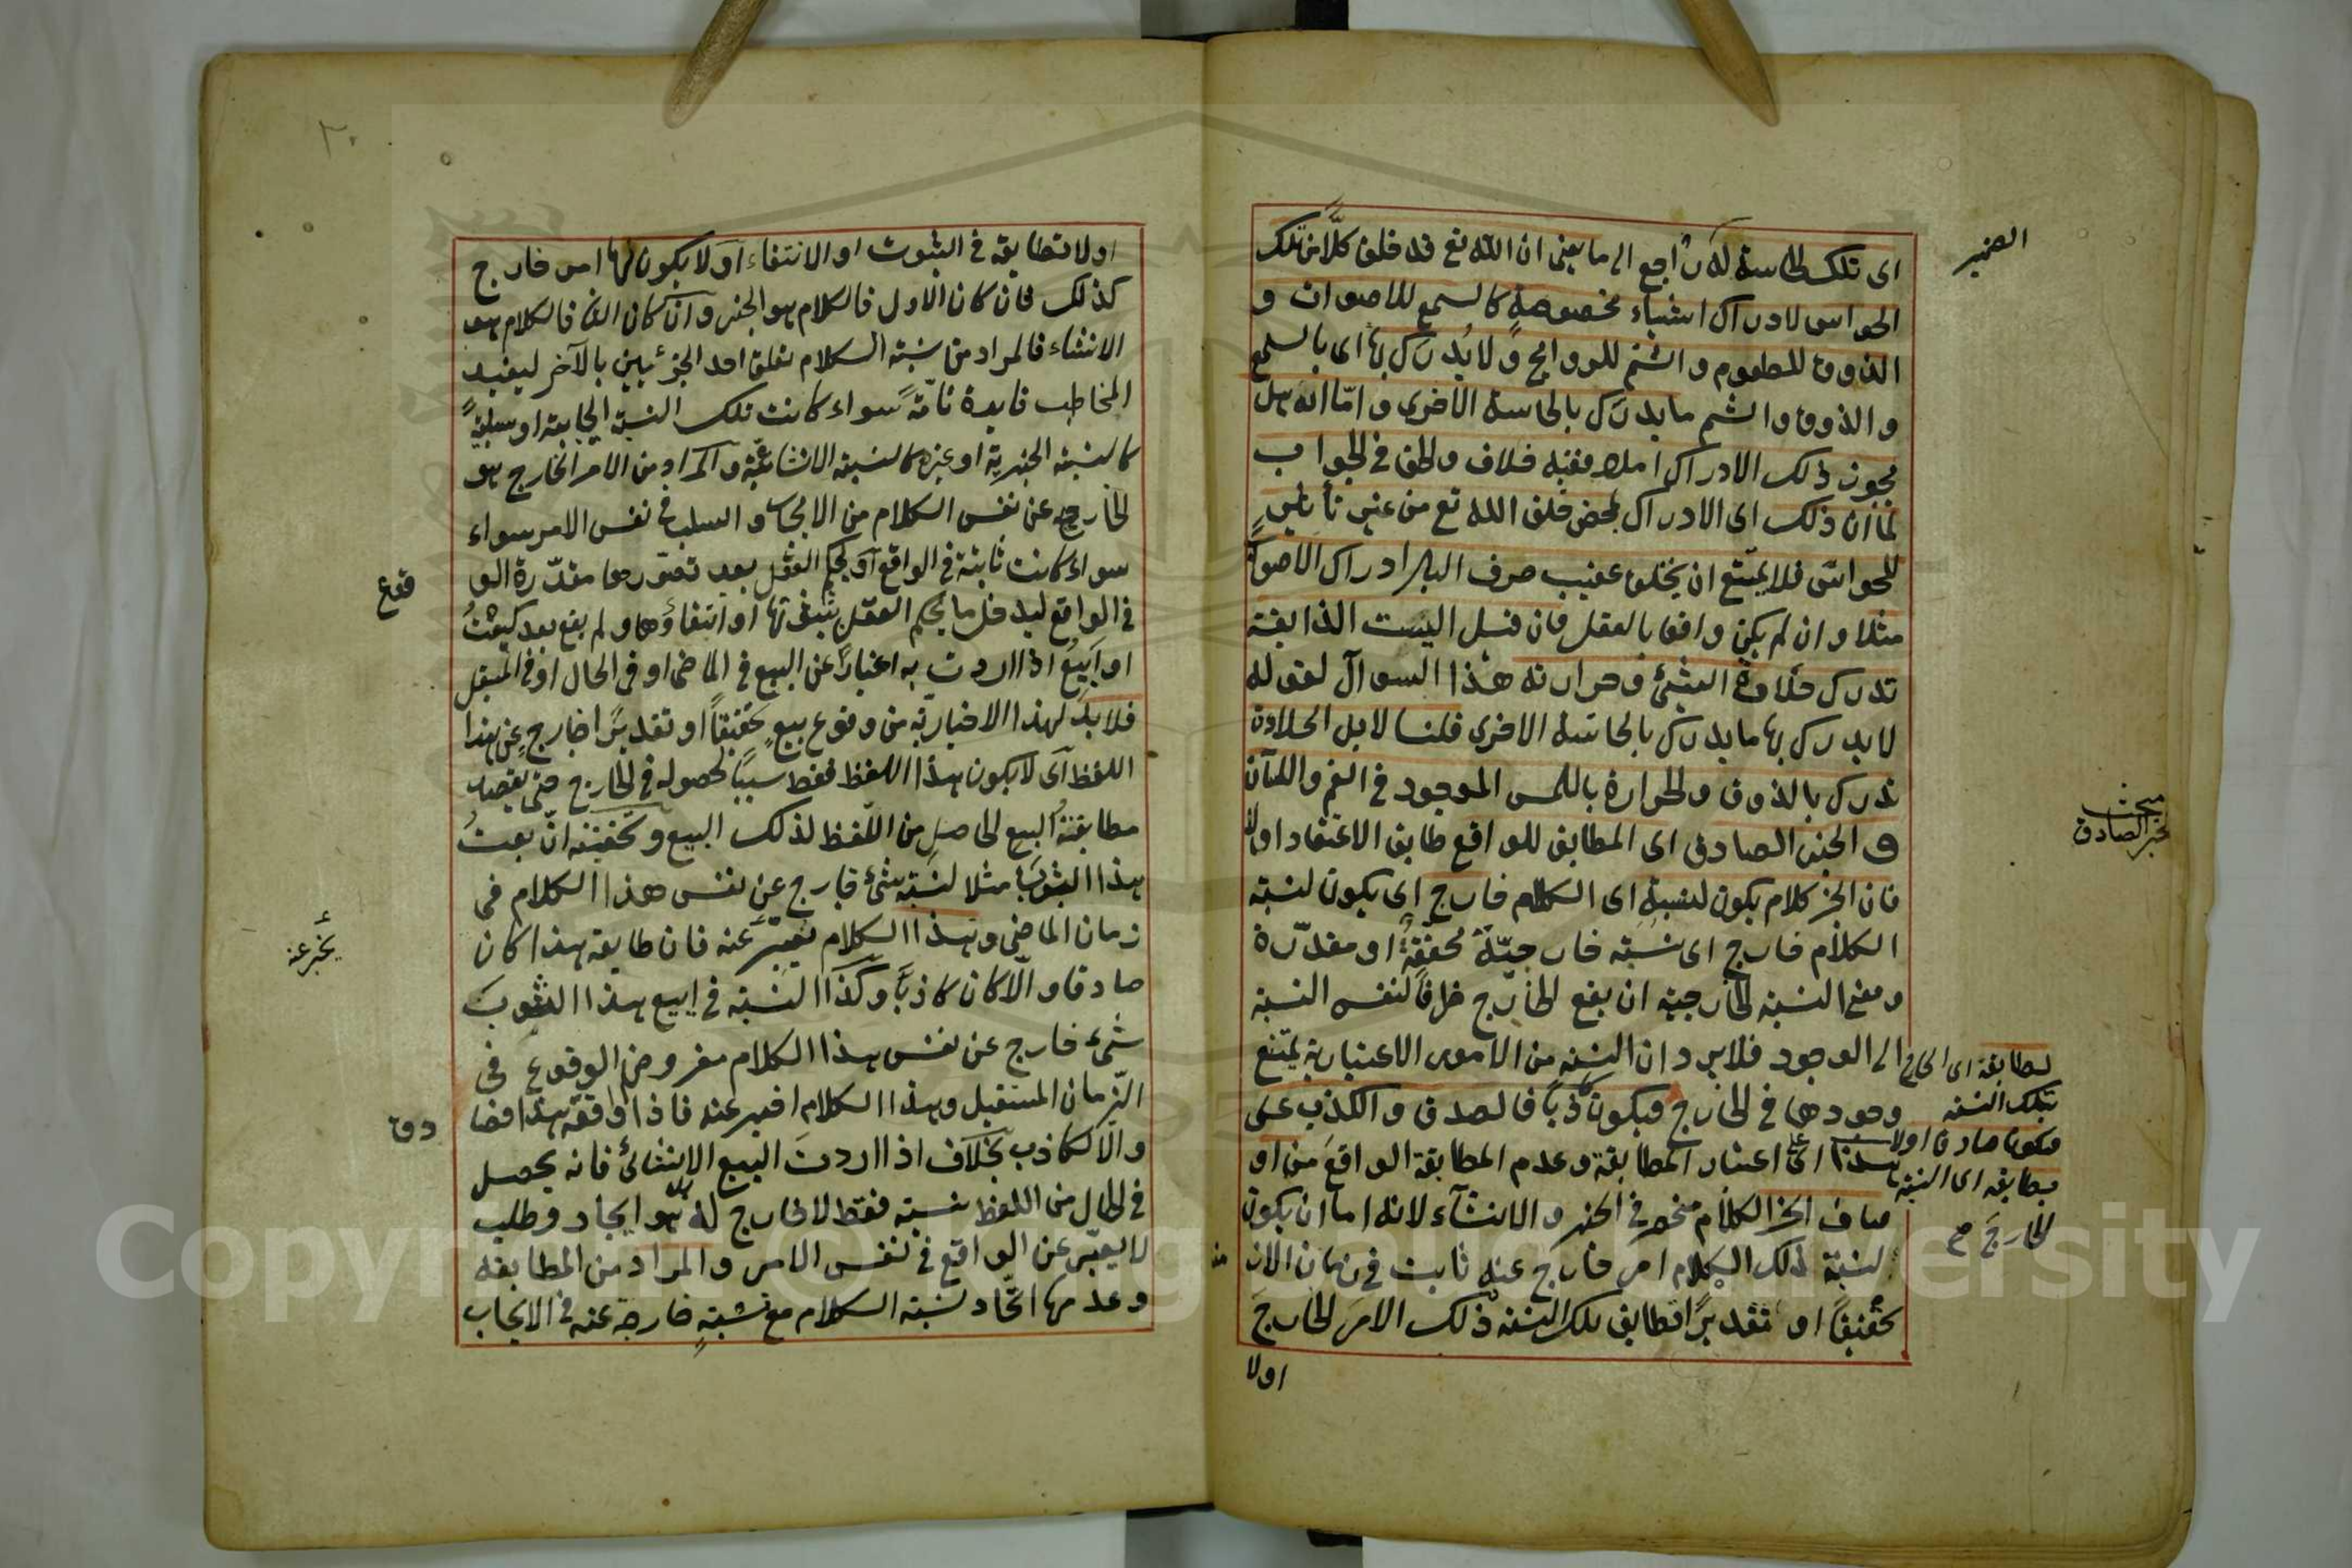 الضمير
اى تلك الحاسة له راجع الى ما يعنى ان الله تع قد خلق كلاًّ من تلك
الحواس لادراك اشياء مخصوصةٍ كالسمع للاصوات و
الذوق للمطعوم والشم للروايح ولا يُدرَك بها اى بالسمع
والذوق والشم ما يدرَك بالحاسة الاخرى وامّا انه هل
يجوز ذلك الادراك ام لا ففيه خلاف والحق فى الجواب
لما ان ذلك اى الادراك بمحض خلق الله تع من غير تأثيرٍ
للحواس فلا يمتنع ان يخلق عقيب صرف الباصر ادراك الاصوات
مثلا وان لم يكن واقعا بالعقل فان قيل اليست الذايقة
تدرك حلاوة الشئ وحرارته هذا السوآل لقوله
لا يدرك بها ما يدرك بالحاسة الاخرى قلنا لا بل الحلاوة
تدرك بالذوق والحرارة باللمس الموجود فى الفم واللسان
مبحث
الخبر الصادق
و الخبر الصادق اى المطابق للواقع طابق الاعتقاد اولا
فان الخبر كلام يكون لنسبة اى الكلام خارج اى يكون لنسبة
الكلام خارج اى نسبته خارجيّة محققةٌ او مقدّرة
ومعنى النسبة الخارجية ان يقع الخارج ظرفاً لنفس النسبة
الى الوجود فلا يرد ان النسبة من الامور الاعتبارية يمتنع
وجودها فى الخارج فيكون كاذباً فالصدق والكذب على
هذا اى على اعتبار المطابقة وعدم المطابقة الواقع من او
صاف الخبر الكلام منحصر فى الخبر والانشآء لانه اما ان يكون
لنسبة ذلك الكلام امر خارج عنه ثابت فى زمان الان
تحقيقاً او تقديرًا تطابق تلك النسبة ذلك الامرَ الخارجَ
اولا
لمطابقة اى الخارج
تلك النسبة
فيكون صادقا اولا
يطابقه اى النسبة
الخارجَ صح
اولا تطابقه فى الثبوت او الانتفاء او لا يكون لها امر خارج
كذلك فان كان الاول فالكلام هو الخبر وان كان الثانى فالكلام هو
الانشاء فالمراد من نسبة الكلام تعلق احد الجزئيين بالآخر ليفيد
المخاطب فايدة تامّةً سواء كانت تلك النسبة ايجابية او سلبيةً
كالنسبة الخبرية او غيره كالنسبة الانشائيّة والمراد من الامر الخارج هو
الخارج عن نفس الكلام من الايجاب والسلب فى نفس الامر سواء
سواء كانت ثابتة فى الواقع او يحكم العقل بعد تصوّرها مقدّرة الو
قوع
فى الواقع ليدخل ما يحكم العقل بثبوتها او انتفاؤها ولم يقع بعد كبعتُ
او ابيعُ اذا اردت به اخباراً عن البيع فى الماضى او فى الحال او فى المستقبل
فلا بدّ لهذا الاخبارية من وقوع بيعٍ تحقيقاً او تقديرًا خارجٍ عن هذا
اللفظ اى لا يكون هذا اللفظ فقط سببًا لحصوله فى الخارج حتى يقصد
مطابقتهُ البيع الحاصل من اللفظ لذلك البيع وتحقيقه انّ بعتُ
هذا الثوبَ مثلا لنسبته شئ خارج عن نفس هذا الكلام فى
زمان الماضى وبهذا الكلام يعبّر عنه فان طابقه هذا كان
يخبر عنه
صادقا والّا كان كاذبًا وكذا النسبة فى ابيع هذا الثوبَ
شئ خارج عن نفس هذا الكلام مفروض الوقوع فى
الزّمان المستقبل وبهذا الكلام اخبر عنه فاذا وافقه هذا فصا
دق
والّا لكاذب بخلاف اذا اردت البيع الانشائى فانه يحصل
فى الحال من اللفظ نسبته فقط لا خارج له بل هو ايجاد وطلب
لا يعبّر عن الواقع فى نفس الامر والمراد من المطابقة
وعدمها اتّحاد نسبة الكلام مع نسبةٍ خارجة عنه فى الايجاب
Copyright © King Saud University